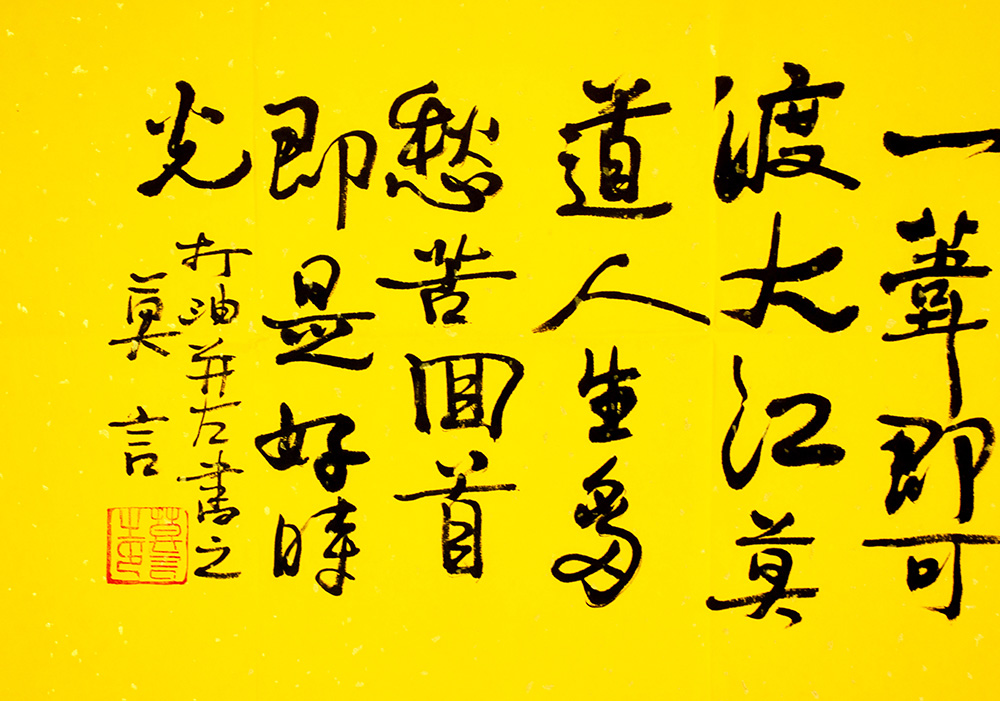 一葦即可
渡大江莫
道人生多
愁苦回首
即是好時
光
打油并左書之
莫言
莫言之印